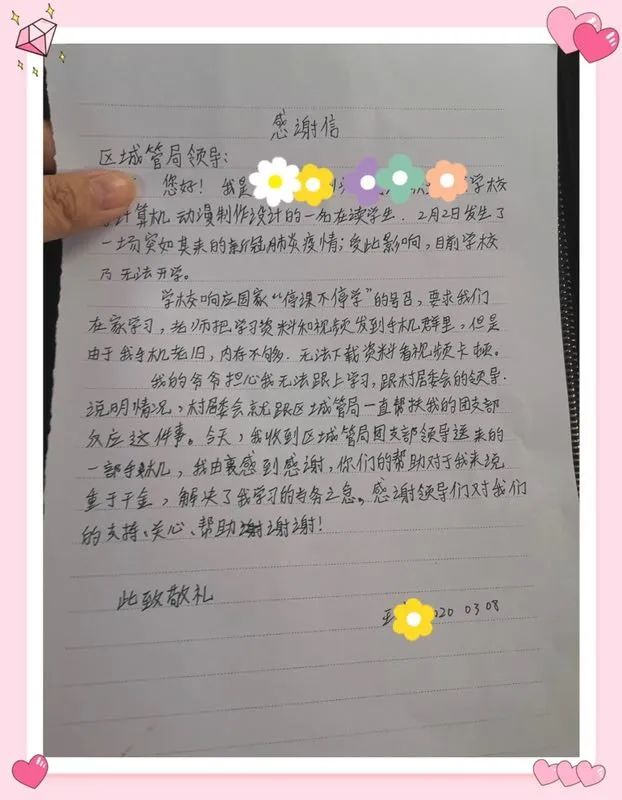 感谢信
区城管局领导:
您好! 我是 学校
计算机动漫制作设计的一名在读学生. 2月2日发生了
一场突如其来的新冠肺炎疫情;受此影响,目前学校
乃无法开学。
学校响应国家“停课不停学”的号召,要求我们
在家学习,老师把学习资料和视频发到手机群里,但是
由于我手机老旧,内存不够.无法下载资料看视频卡顿。
我的爷爷担心我无法跟上学习,跟村居委会的领导.
说明情况,村居委会就跟区城管局一直帮扶我的团支部
反应这件事。今天,我收到区城管局团支部领导送来的
一部手机,我由衷感到感谢,你们的帮助对于我来说
重于千金,解决了我学习的当务之急。感谢领导们对我们
的支持、关心、帮助谢谢!
此致敬礼
2020 03 08